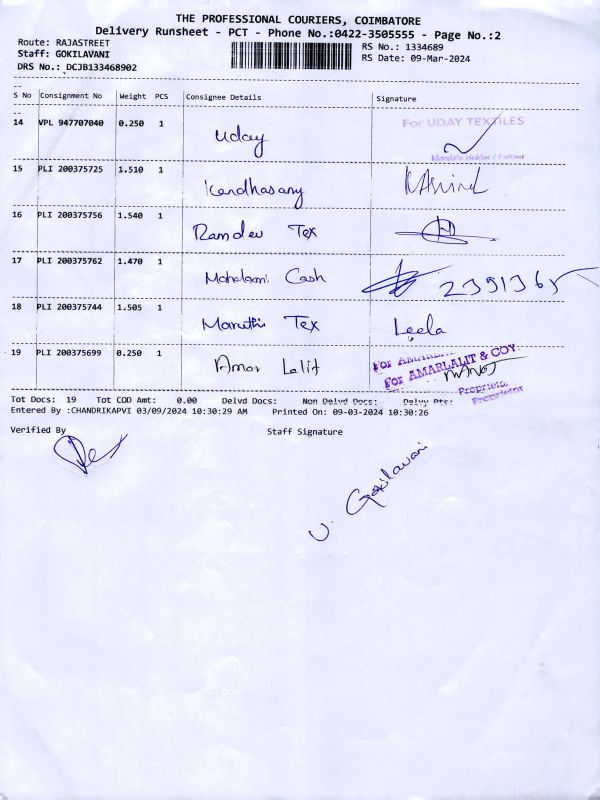 THE PROFESSIONAL COURIERS, COIMBATORE
Delivery Runsheet - PCT - Phone No.:0422-3505555 - Page No.:2
Route: RAJASTREET
RS No.: 1334689
Staff: GOKILAVANI
RS Date: 09-Mar-2024
DRS No.: DCJB133468902
S No Consignment No Weight PCS Consignee Details Signature
14 VPL 947707040 0.250 1 Uday For UDAY TEXTILES
Mandate Holder / Partner
15 PLI 200375725 1.510 1 Kandhasamy
16 PLI 200375756 1.540 1 Ramdev Tex
17 PLI 200375762 1.470 1 Cash 2391365
18 PLI 200375744 1.505 1 Maruthi Tex Leela
19 PLI 200375699 0.250 1 Amar Lalit For AMARLALIT & COY
Proprietor
Proprietor
Tot Docs: 19 Tot COD Amt: 0.00 Delvd Docs: Non Delvd Docs: Delvy Pts:
Entered By :CHANDRIKAPVI 03/09/2024 10:30:29 AM Printed On: 09-03-2024 10:30:26
Verified By Staff Signature
V. Gokilavani